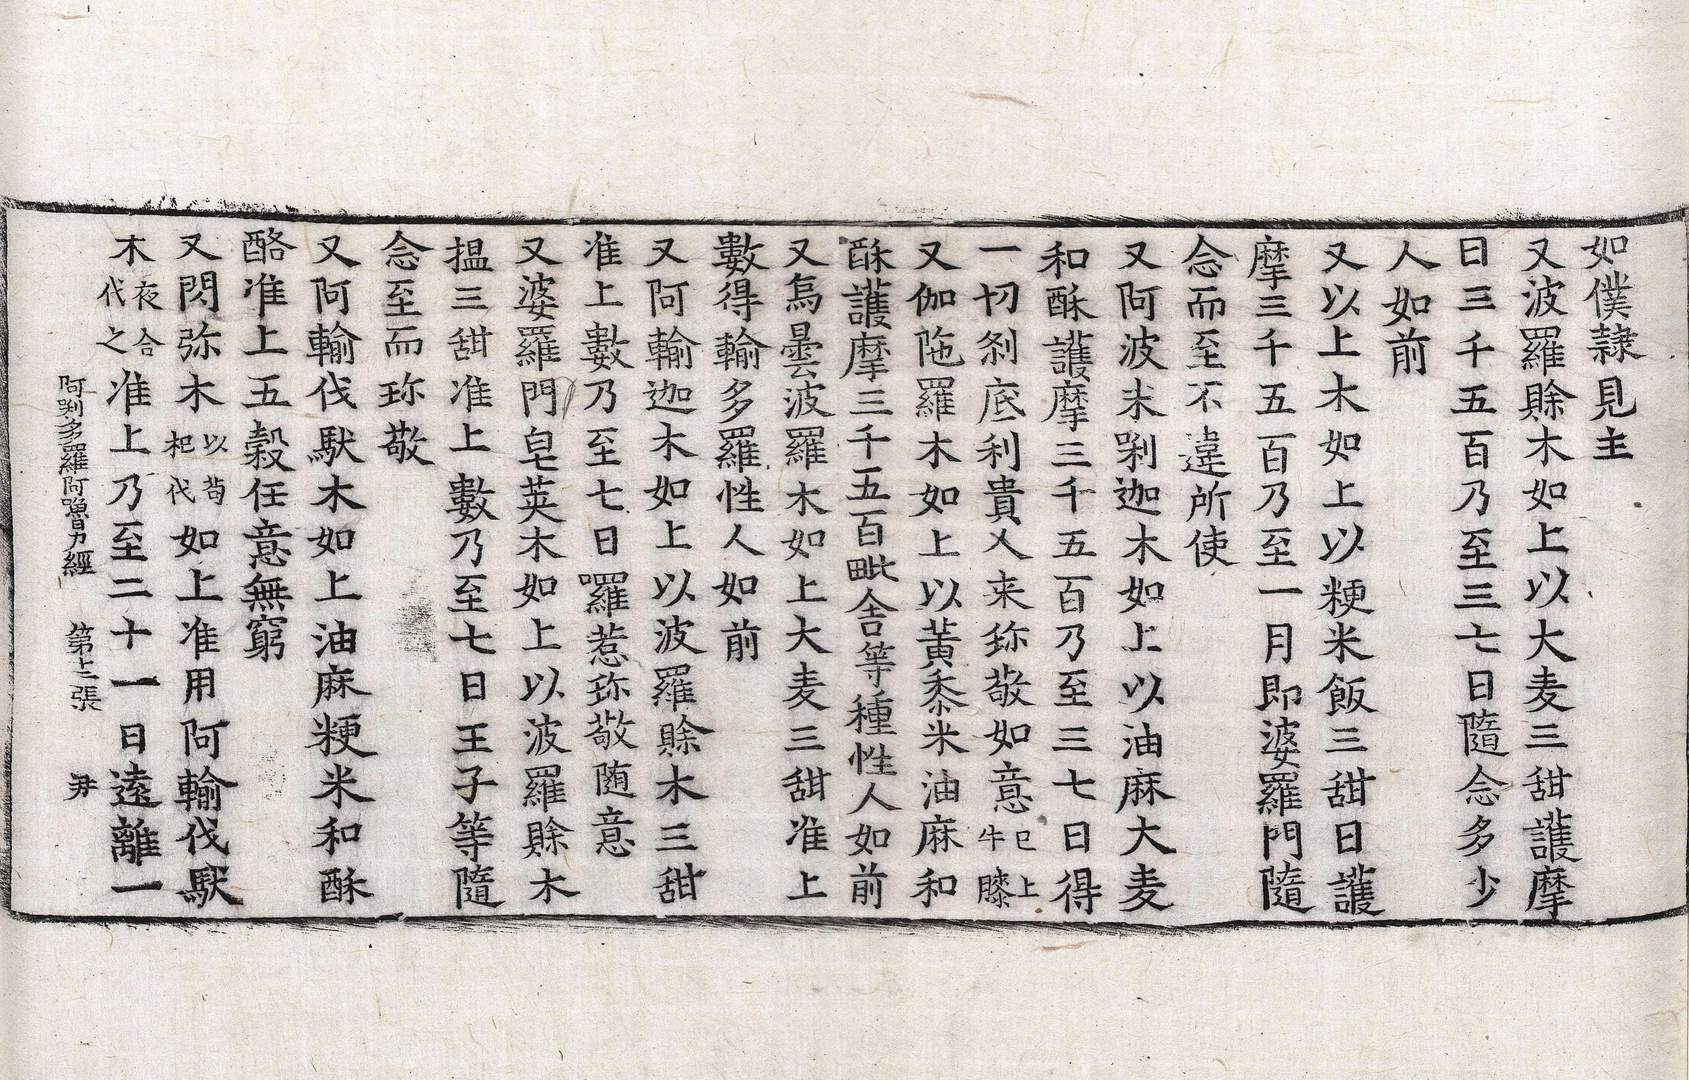 如僕隷見主
又波羅賖木如上以大麦三甜護摩
日三千五百乃至三七日隨念多少
人如前
又以上木如上以粳米飯三甜日護
摩三千五百乃至一月即婆羅門隨
念而至不違所使
又阿波末㗚迦木如上以油麻大麦
和酥護摩三千五百乃至三七日得
一切刹底利貴人来珎敬如意已上牛膝
又伽陁羅木如上以黃黍米油麻和
酥護摩三千五百毗舍等種性人如前
又烏曇波羅木如上大麦三甜准上
數得輸多羅性人如前
又阿輸迦木如上以波羅賖木三甜
准上數乃至七日囉惹珎敬随意
又婆羅門皂莢木如上以波羅賖木
揾三甜准上數乃至七日王子等隨
念至而珎敬
又阿輸伐馱木如上油麻粳米和酥
酪准上五穀任意無窮
又閃弥木以苟杞代如上准用阿輸伐馱
木夜合代之准上乃至二十一日遠離一
阿唎多羅阿嚕力經 第上張 尹